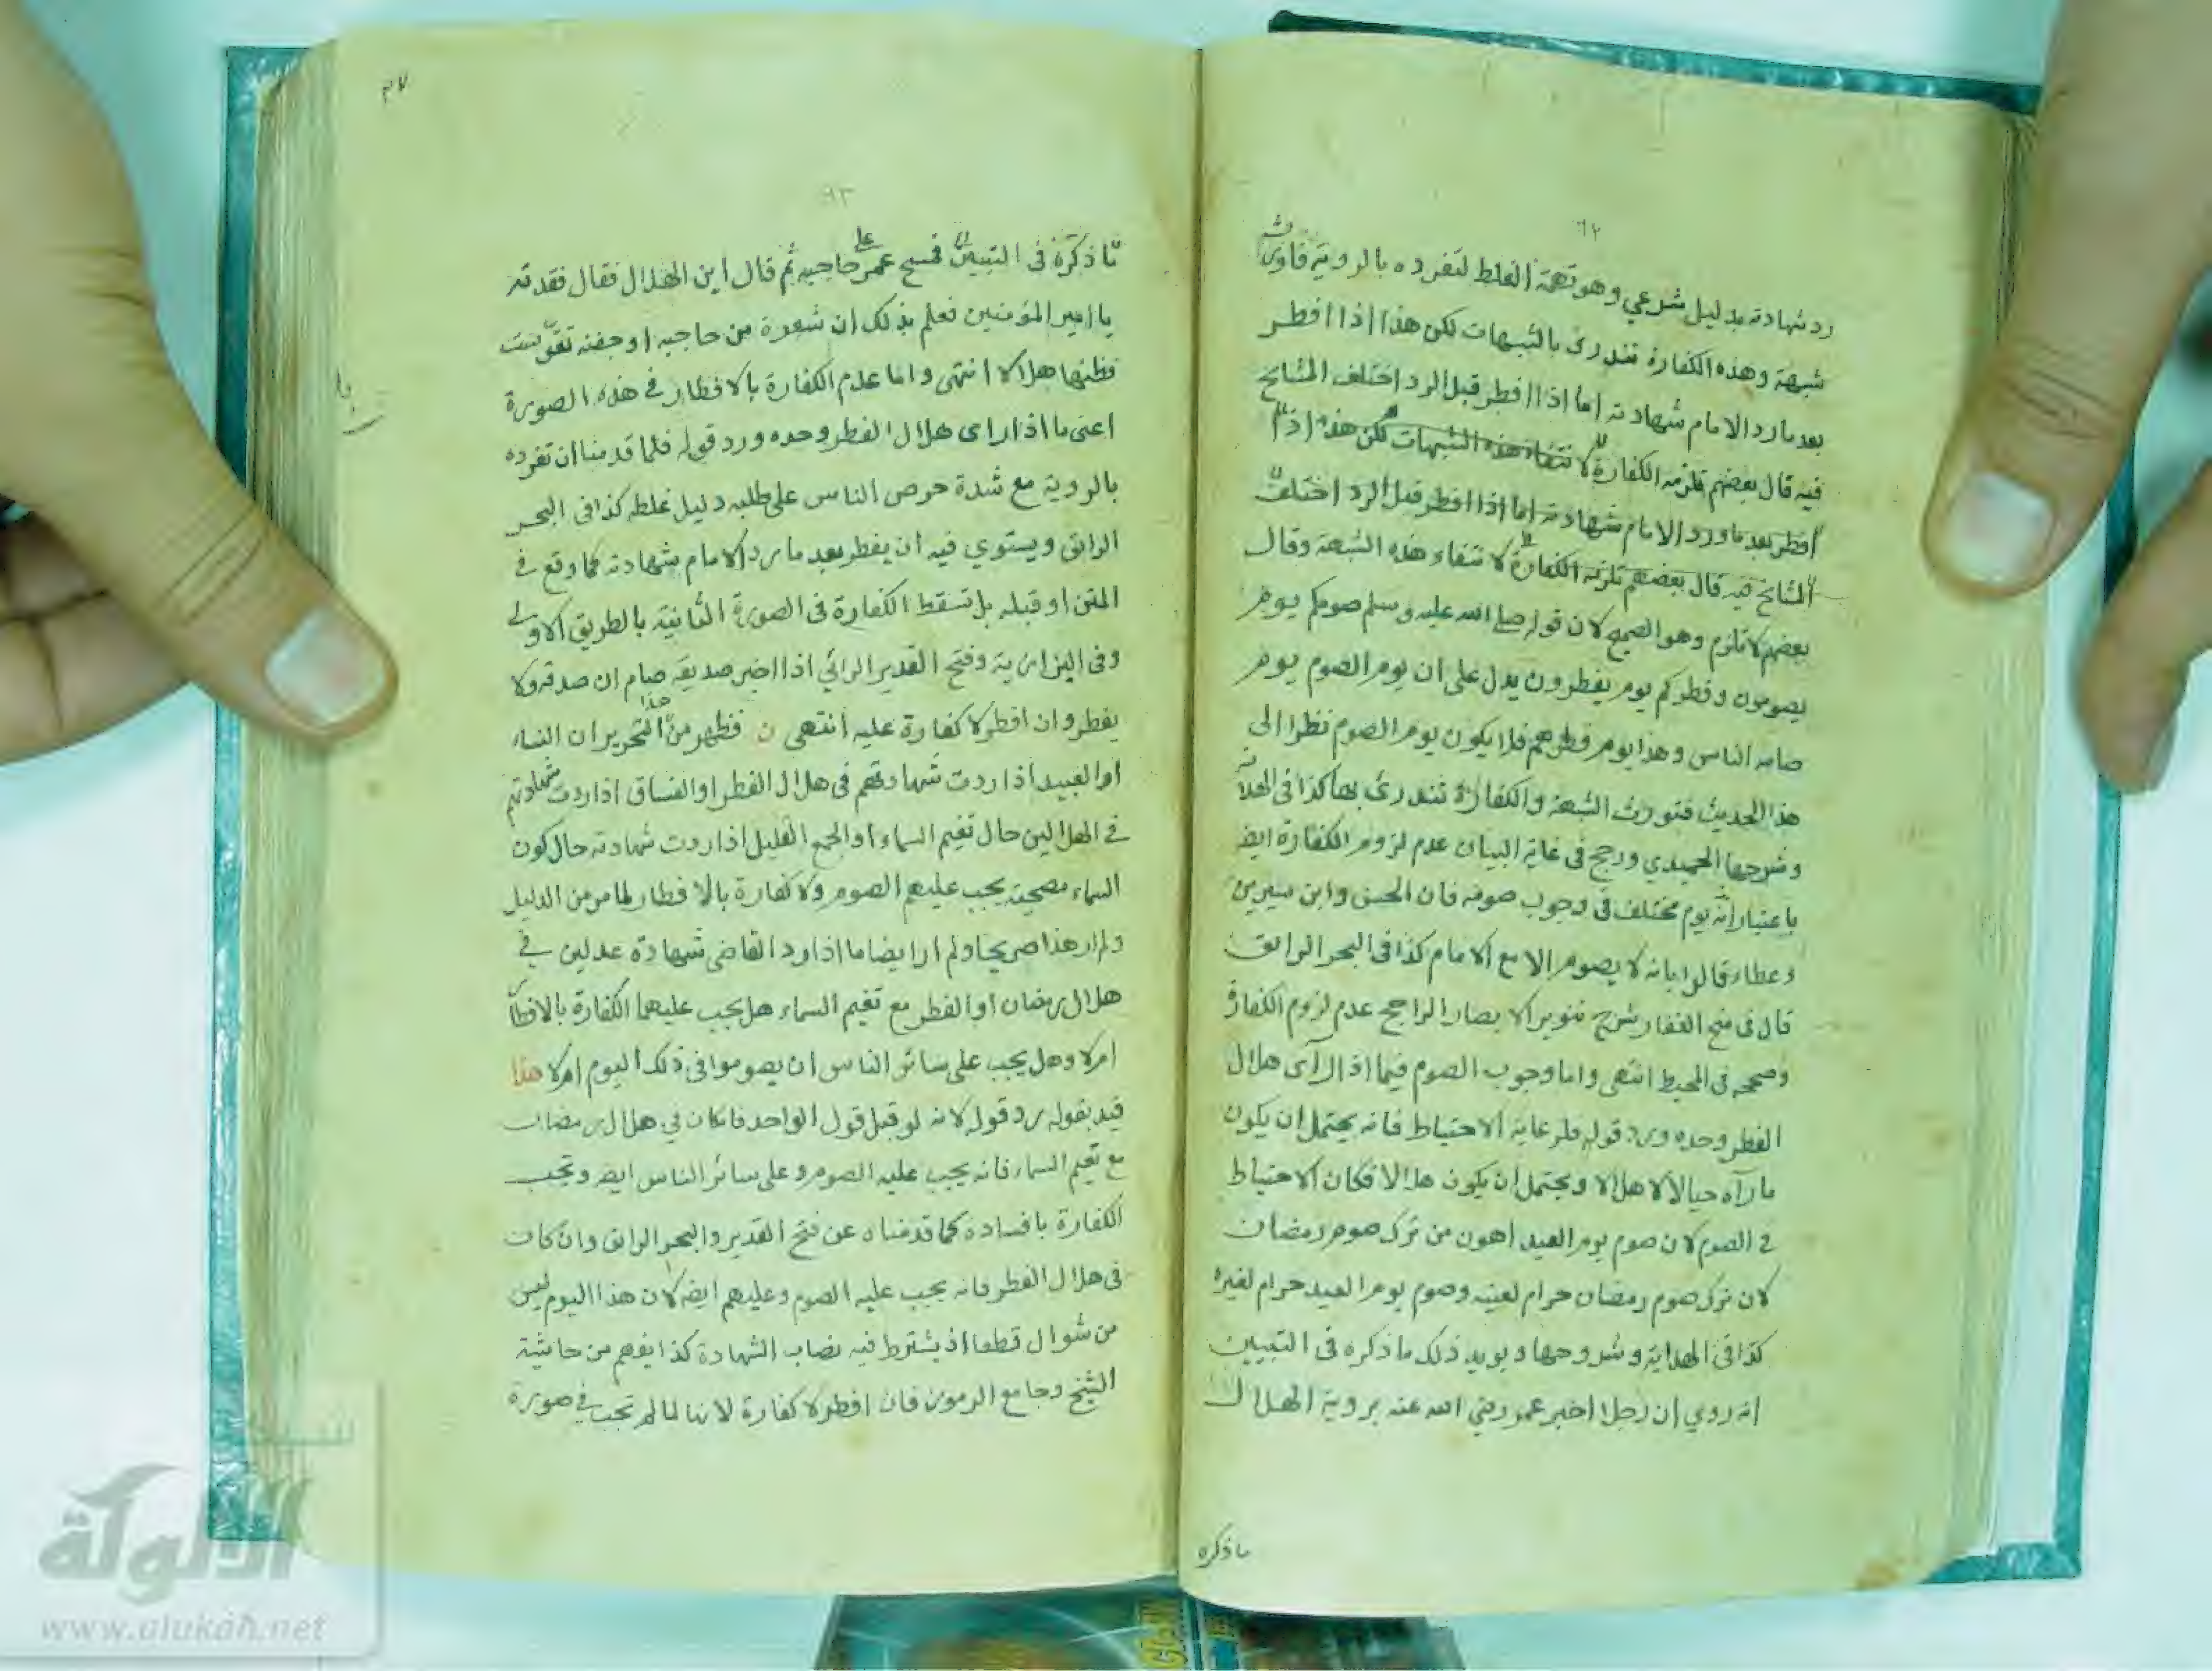 ٦٢
رد شهادته بدليل شرعي وهو تهمة الغلط لتفرده بالروية فاورث
شبهة وهذه الكفارة تندرئ بالشبهات لكن هذا اذا افطر
بعد ما رد الامام شهادته اما اذا افطر قبل الرد اختلف المشايخ
فيه قال بعضهم تلزمه الكفارة لانتفاء هذه الشبهات لكن هذه اذا
افطر بعد ما ورد الامام شهادته اما اذا افطر قبل الرد اختلف
المشايخ فيه قال بعضهم تلزمه الكفارة لانتفاء هذه الشبهة وقال
بعضهم لا تلزم وهو الصحيح لان قوله صلى الله عليه وسلم صومكم يوم
يصومون وفطركم يوم يفطرون يدل على ان يوم الصوم يوم
صامه الناس وهذا يوم فطرهم فلا يكون يوم الصوم نظرا الى
هذا الحديث فتورث الشبهة والكفارة تندرئ بها كذا في الهداية
وشرحها الحميدي ورجح في غاية البيان عدم لزوم الكفارة ايضا
باعتبار انه يوم مختلف في وجوب صومه فان الحسن وابن سيرين
وعطاء قالوا بانه لا يصوم الا مع الامام كذا في البحر الرائق
قال في منح الغفار شرح تنوير الابصار الراجح عدم لزوم الكفارة
وصححه في المحيط انتهى واما وجوب الصوم فيما اذا رآى هلال
الفطر وحده ورد قوله فلرعاية الاحتياط فانه يحتمل ان يكون
ما رآه خيالا لا هلالا ويحتمل ان يكون هلالا فكان الاحتياط
في الصوم لان صوم يوم العيد اهون من ترك صوم رمضان
لان ترك صوم رمضان حرام لعينه وصوم يوم العيد حرام لغيره
كذا في الهداية وشروحها ويويد ذلك ما ذكره في التبيين
انه روي ان رجلا اخبر عمر رضي الله عنه بروية الهلال
ما ذكره
٣٧
٦٣
ما ذكره في التبيين فمسح عمر على حاجبيه ثم قال اين الهلال فقال فقدته
يا امير المؤمنين فعلم بذلك ان شعرة من حاجبه او جفنه تقوست
فظنها هلالا انتهى واما عدم الكفارة بالافطار في هذه الصورة
اعني ما اذا راى هلال الفطر وحده ورد قوله فلما قدمنا ان تفرده
بالروية مع شدة حرص الناس على طلبه دليل غلطه كذا في البحر
الرائق ويستوي فيه ان يفطر بعد ما رد الامام شهادته كما وقع في
المتن او قبله بل تسقط الكفارة في الصورة الثانية بالطريق الاولى
وفي البزازية وفتح القدير الرائي اذا اخبر صديقه صام ان صدقه ولا
يفطر وان افطر لا كفارة عليه انتهى ن فظهر من هذا التحرير ان النساء
او العبيد اذا ردت شهادتهم في هلال الفطر او الفساق اذا ردت شهادتهم
في الهلالين حال تغيم السماء او الجمع القليل اذا ردت شهادته حال كون
السماء مصحية يجب عليهم الصوم ولا كفارة بالافطار لما مر من الدليل
ولم ار هذا صريحا ولم ار ايضا ما اذا رد القاضي شهادة عدلين في
هلال رمضان او الفطر مع تغيم السماء هل يجب عليهما الكفارة بالافطار
ام لا وهل يجب على سائر الناس ان يصوموا في ذلك اليوم ام لا هذا
قيد بقوله رد قوله لانه لو قبل قول الواحد فان كان في هلال رمضان
مع تغيم السماء فانه يجب عليه الصوم وعلى سائر الناس ايضا وتجب
الكفارة بافساده كما قدمناه عن فتح القدير والبحر الرائق وان كان
في هلال الفطر فانه يجب عليه الصوم وعليهم ايضا لان هذا اليوم ليس
من شوال قطعا اذ يشترط فيه نصاب الشهادة كذا يفهم من حاشية
الشيخ وجامع الرموز فان افطر لا كفارة لانها لما لم تجب في صورة
الألوكة
www.alukah.net